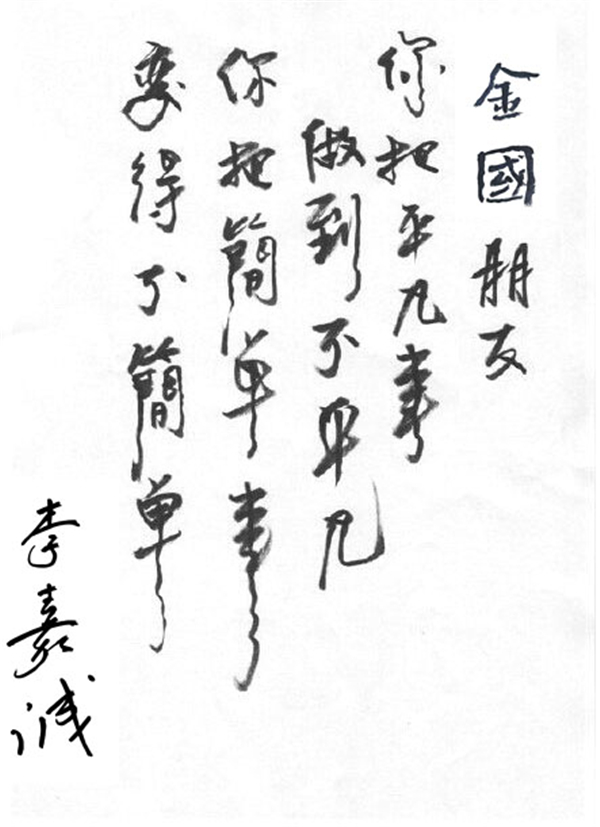 金國朋友
你把平凡事
做到不平凡
你把簡单事
变得不簡单
李嘉诚